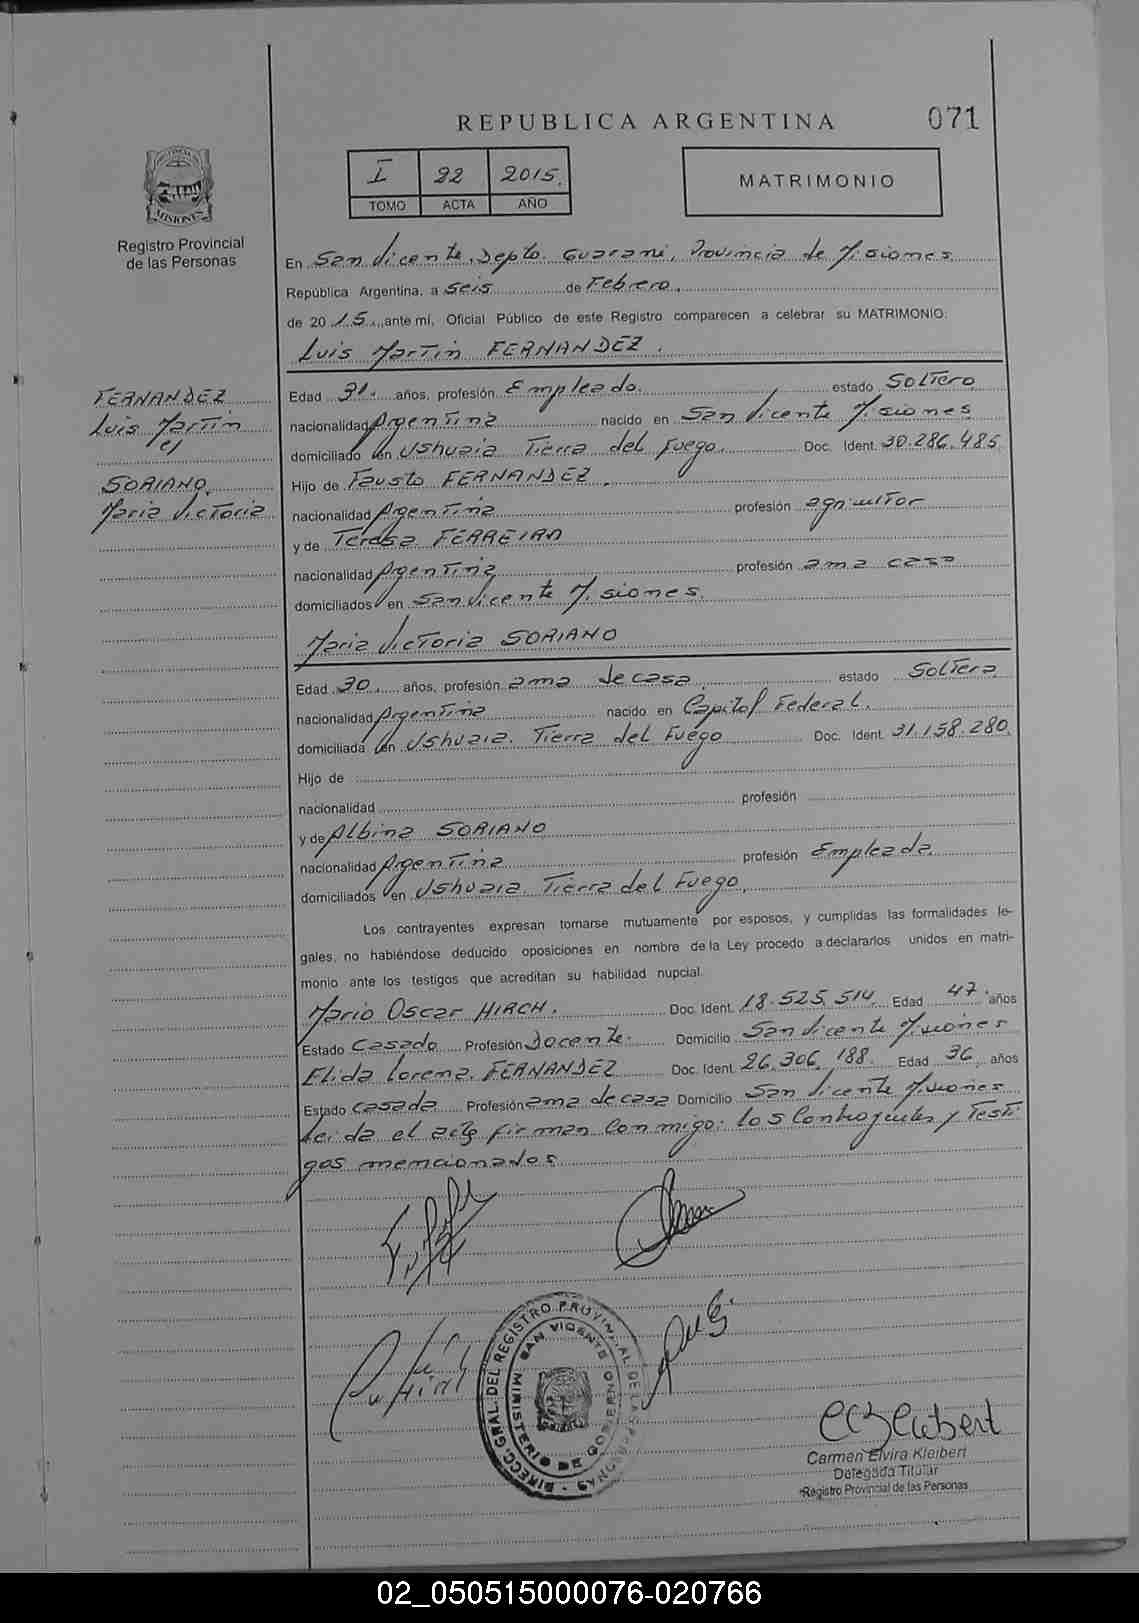 REPUBLICA ARGENTINA
071
I 22 2015.
TOMO ACTA AÑO
MATRIMONIO
MISIONES
Registro Provincial
de las Personas
En San Vicente, Depto. Guarani, Provincia de Misiones
República Argentina, a seis de Febrero.
de 20 15., ante mí, Oficial Público de este Registro comparecen a celebrar su MATRIMONIO:
Luis Martin FERNANDEZ.
FERNANDEZ
Luis Martin
c/
SORIANO,
Maria Victoria
Edad 31. años, profesión Empleado. estado Soltero
nacionalidad Argentina nacido en San Vicente Misiones
domiciliado en Ushuaia Tierra del Fuego. Doc. Ident. 30.286.485.
Hijo de Fausto FERNANDEZ.
nacionalidad Argentina profesión agricultor
y de Teresa FERREIRA
nacionalidad Argentina profesión ama casa
domiciliados en San Vicente Misiones.
Maria Victoria SORIANO
Edad 30. años, profesión ama de casa. estado Soltera
nacionalidad Argentina nacido en Capital Federal.
domiciliada en Ushuaia. Tierra del Fuego Doc. Ident. 31.158.280.
Hijo de
nacionalidad profesión
y de Albina SORIANO
nacionalidad Argentina profesión Empleada.
domiciliados en Ushuaia. Tierra del Fuego.
Los contrayentes expresan tomarse mutuamente por esposos, y cumplidas las formalidades le-
gales, no habiéndose deducido oposiciones en nombre de la Ley procedo a declararlos unidos en matri-
monio ante los testigos que acreditan su habilidad nupcial.
Mario Oscar HIRCH. Doc. Ident. 18.525.514. Edad 47 años
Estado Casado Profesión Docente. Domicilio San Vicente Misiones
Elida Lorena. FERNANDEZ Doc. Ident. 26.306.188. Edad 36 años
Estado casada Profesión ama de casa Domicilio San Vicente Misiones
Leida el acta firman conmigo: los Contrayentes y Testi
gos mencionados
DIRECC. GRAL. DEL REGISTRO PROVINCIAL DE LAS PERSONAS
SAN VICENTE
MINISTERIO DE GOBIERNO
Carmen Elvira Kleibert
Delegada Titular
Registro Provincial de las Personas
02_050515000076-020766